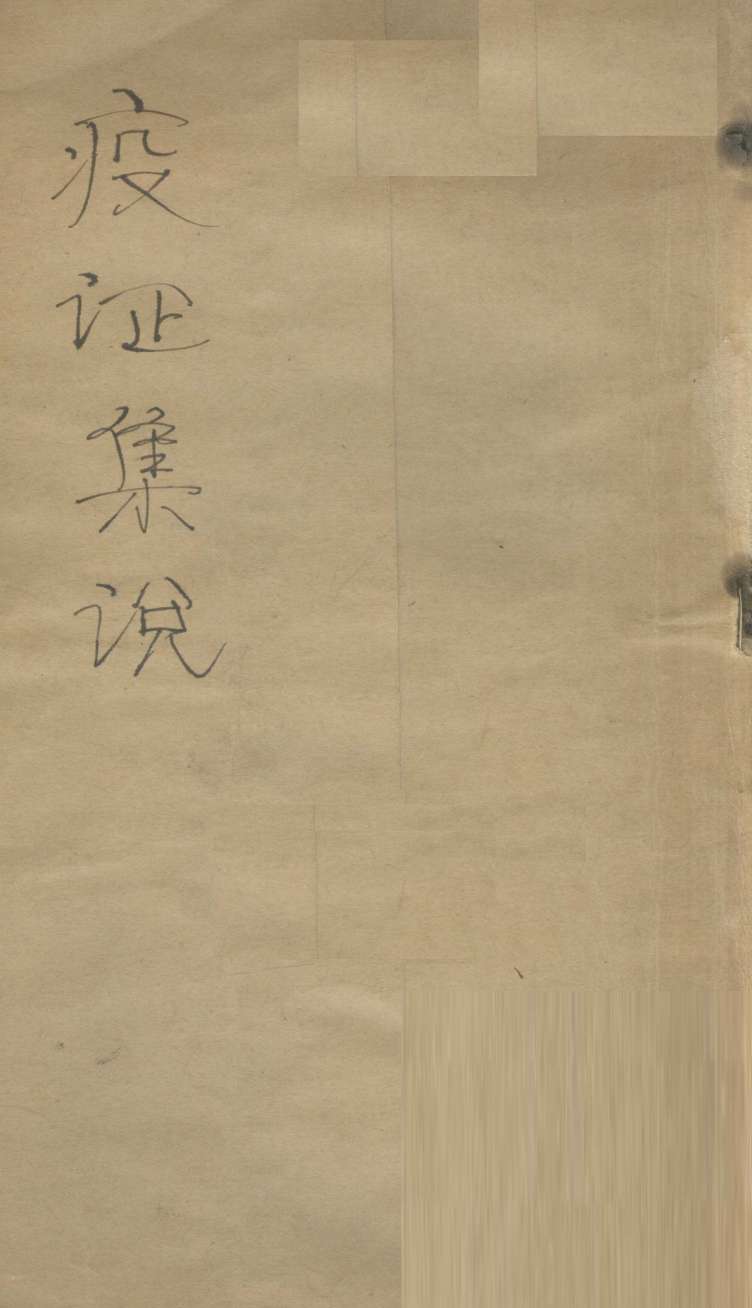 疫证集说